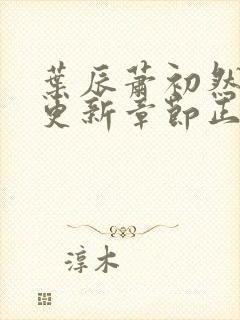 葉辰蕭初然
更新章節正
淳木